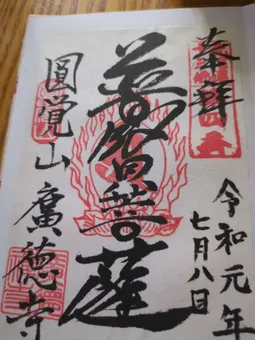 奉拜
令和元年
七月八日
普賢菩薩
圓覚山
廣德寺